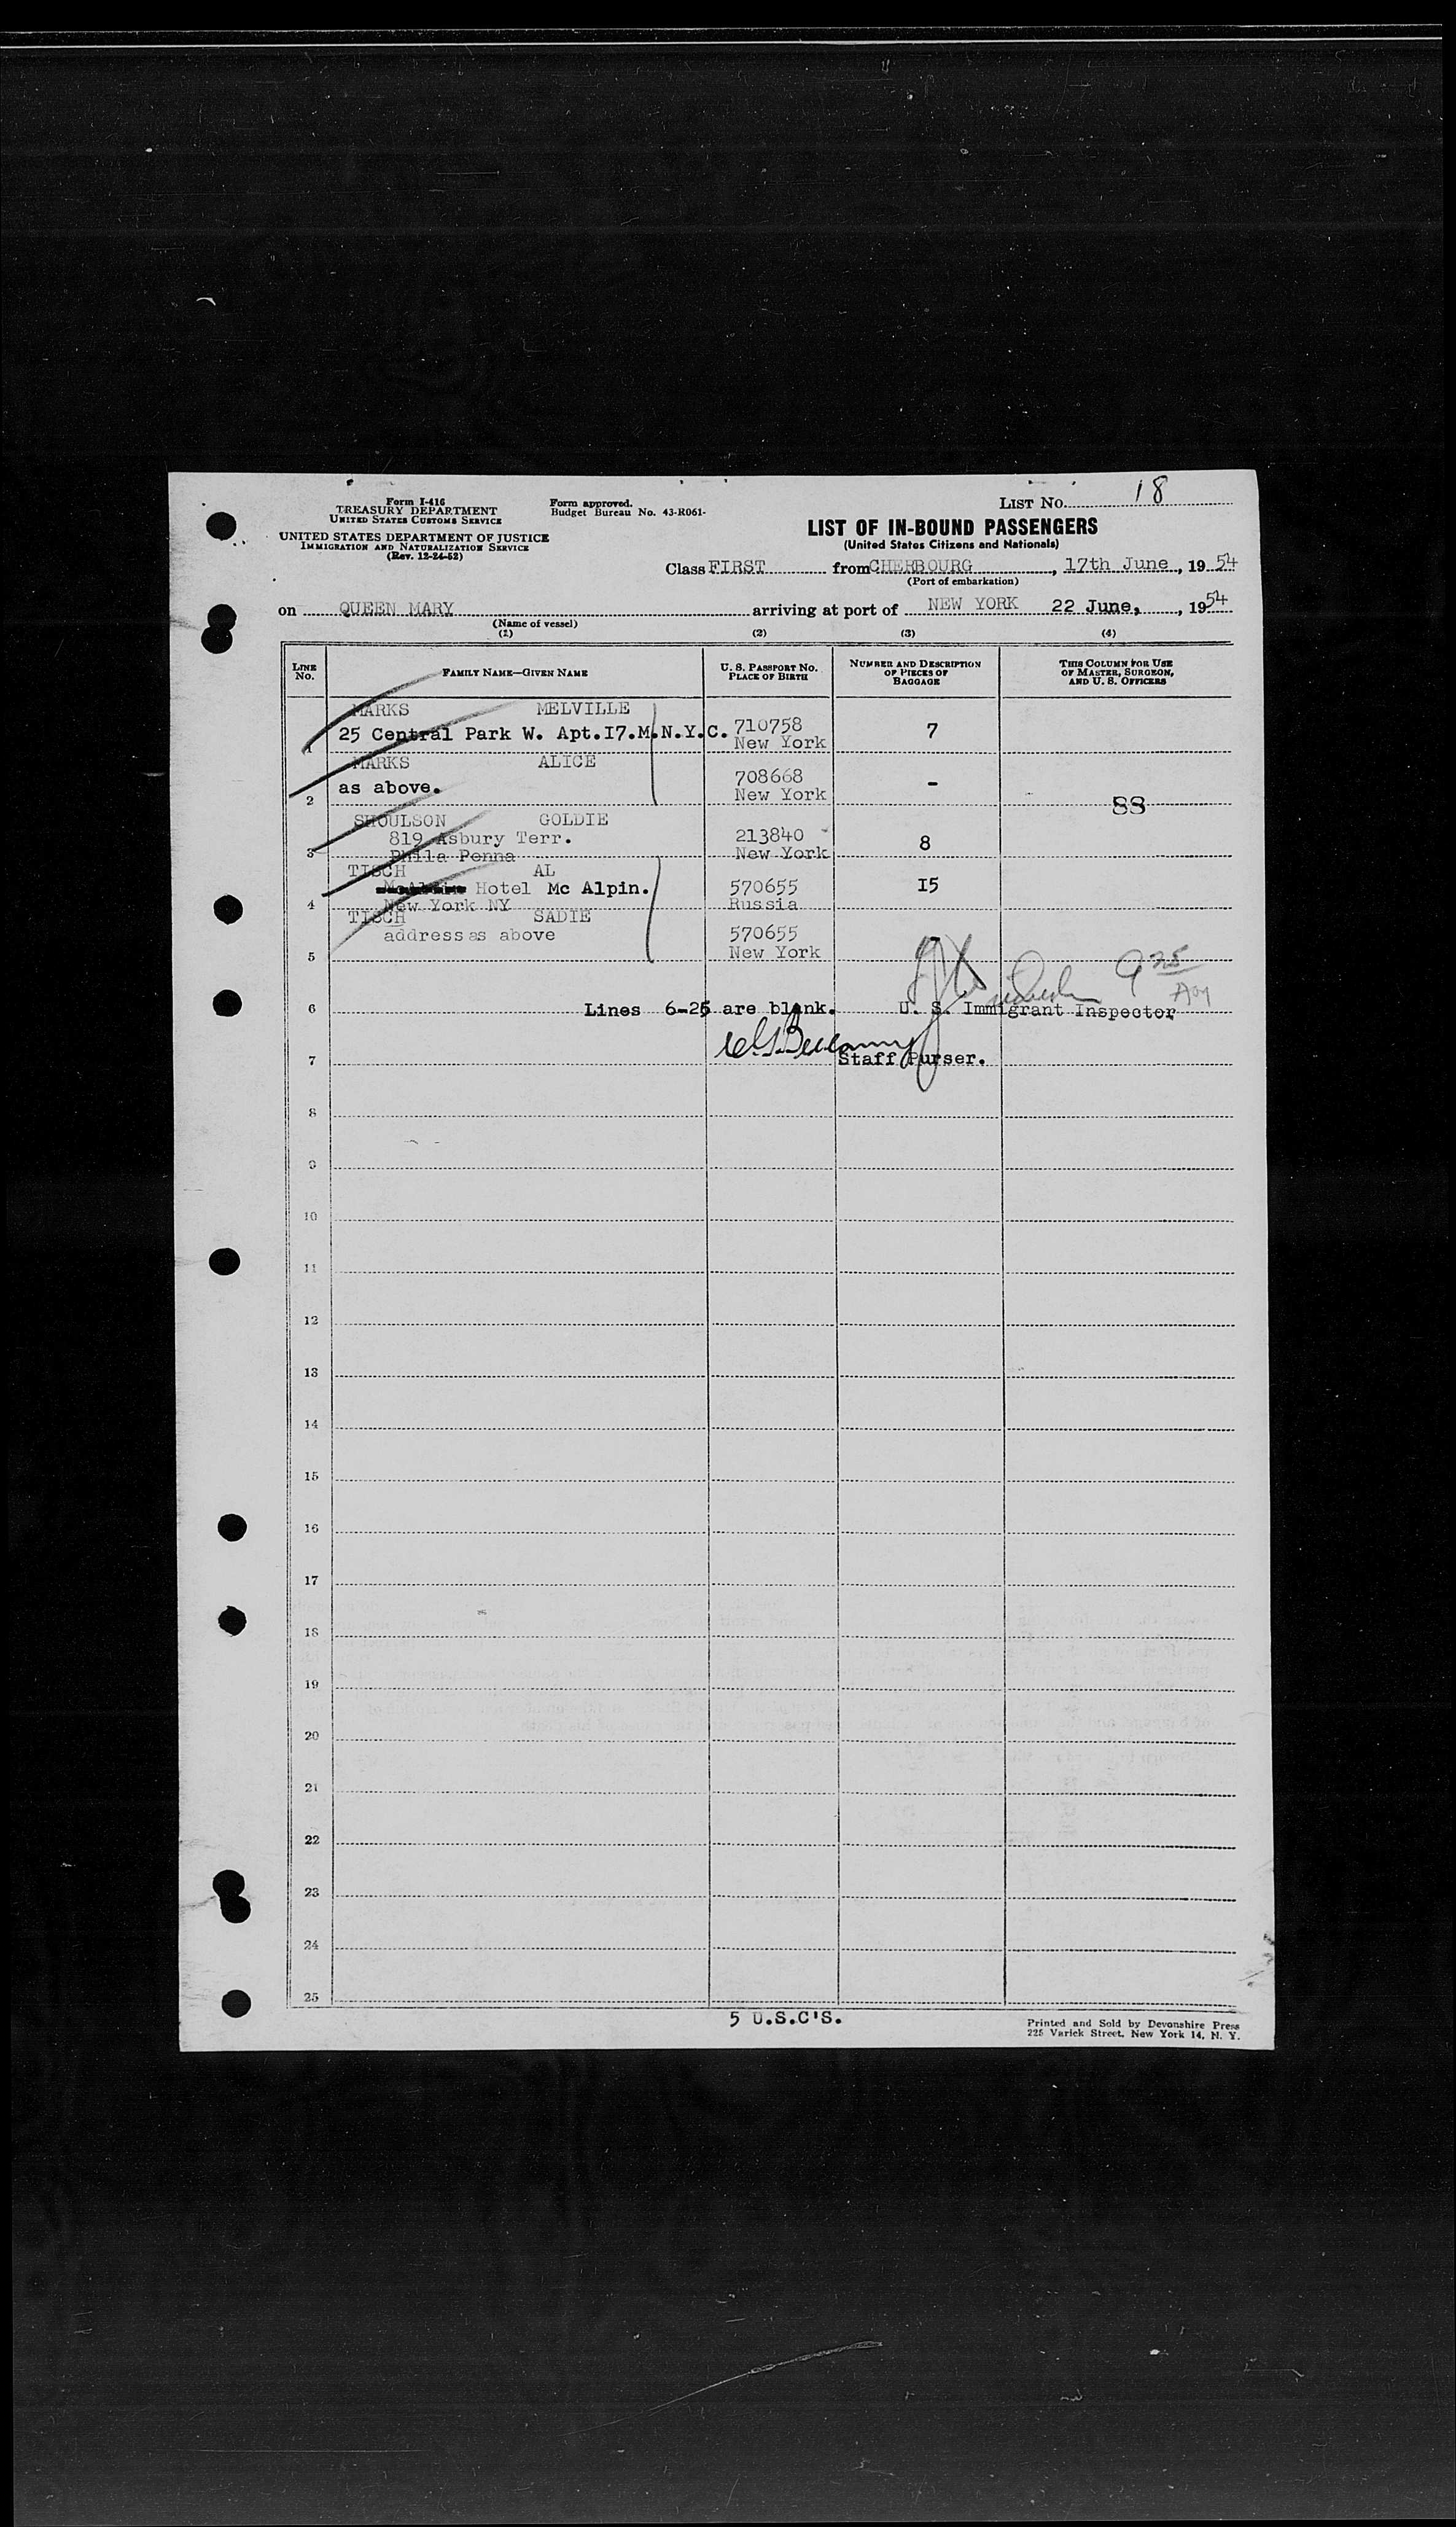 Form I-416
TREASURY DEPARTMENT
UNITED STATES CUSTOMS SERVICE
UNITED STATES DEPARTMENT OF JUSTICE
IMMIGRATION AND NATURALIZATION SERVICE
(Rev. 12-24-52)
Form approved.
Budget Bureau No. 43-R061-
LIST NO. 18
LIST OF IN-BOUND PASSENGERS
(United States Citizens and Nationals)
Class FIRST from CHERBOURG, 17th June, 1954
(Port of embarkation)
on QUEEN MARY arriving at port of NEW YORK 22 June, 1954
(Name of vessel)
(1) (2) (3) (4)
LINE NO.
FAMILY NAME—GIVEN NAME
U. S. PASSPORT NO.
PLACE OF BIRTH
NUMBER AND DESCRIPTION
OF PIECES OF
BAGGAGE
THIS COLUMN FOR USE
OF MASTER, SURGEON,
AND U. S. OFFICERS
MARKS MELVILLE
25 Central Park W. Apt.I7.M.N.Y.C. 710758 7
1 New York
MARKS ALICE
as above. 708668 -
2 New York 88
SHOULSON GOLDIE
819 Asbury Terr. 213840 8
3 Phila Penna New York
TISCH AL
Hotel Mc Alpin. 570655 I5
4 New York NY Russia
TISCH SADIE
address as above 570655 -
5 New York
9 25
6 Lines 6-25 are blank. U. S. Immigrant Inspector
7 Staff Purser.
8
9
10
11
12
13
14
15
16
17
18
19
20
21
22
23
24
25
5 U.S.C'S.
Printed and Sold by Devonshire Press
225 Varick Street, New York 14, N. Y.